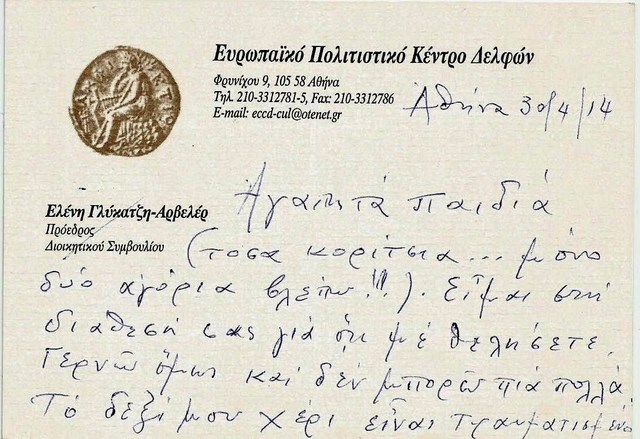 Ευρωπαϊκό Πολιτιστικό Κέντρο Δελφών
Φρυνίχου 9, 105 58 Αθήνα
Τηλ. 210-3312781-5, Fax: 210-3312786
E-mail: eccd-cul@otenet.gr
Αθήνα 30/4/14
Ελένη Γλύκατζη-Αρβελέρ
Πρόεδρος
Διοικητικού Συμβουλίου
Αγαπητά παιδιά
(τοσα κορίτσια... μόνο
δύο αγόρια βλέπω!!). Εἶμαι στή
διαθεσή σας γιά ὅτι μέ θελήσετε.
Γερνῶ ὅμως και δέν μπορῶ πιά πολλά
Τό δεξί μου χέρι εἶναι τραυματισμένο